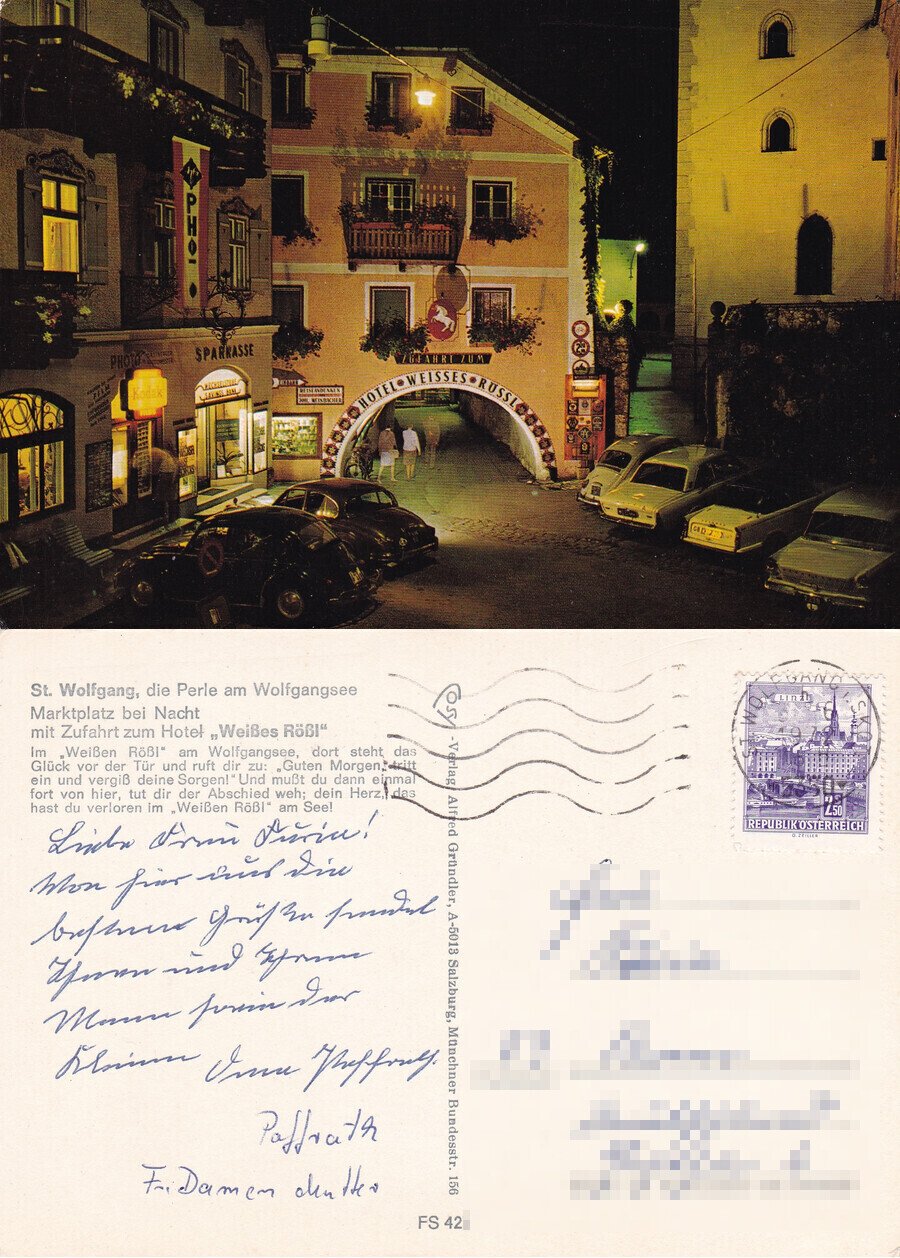 PHO
SPARKASSE
PHOTO
Kodak
ZUFAHRT ZUM
HOTEL WEISSES RÖSSL
REISEANDENKEN
JOH. WEINBACHER
St. Wolfgang, die Perle am Wolfgangsee
Marktplatz bei Nacht
mit Zufahrt zum Hotel „Weißes Rößl“
Im „Weißen Rößl“ am Wolfgangsee, dort steht das
Glück vor der Tür und ruft dir zu: „Guten Morgen, tritt
ein und vergiß deine Sorgen!“ Und mußt du dann einmal
fort von hier, tut dir der Abschied weh; dein Herz, das
hast du verloren im „Weißen Rößl“ am See!
Liebe Frau
Von hier aus die
besten Grüße sendet
Ihnen und Ihrem
Mann sowie der
Kleinen
Paffrath
Cosy
-Verlag Alfred Gründler, A-5013 Salzburg, Münchner Bundesstr. 156
LINZ
2.50
REPUBLIK ÖSTERREICH
FS 42